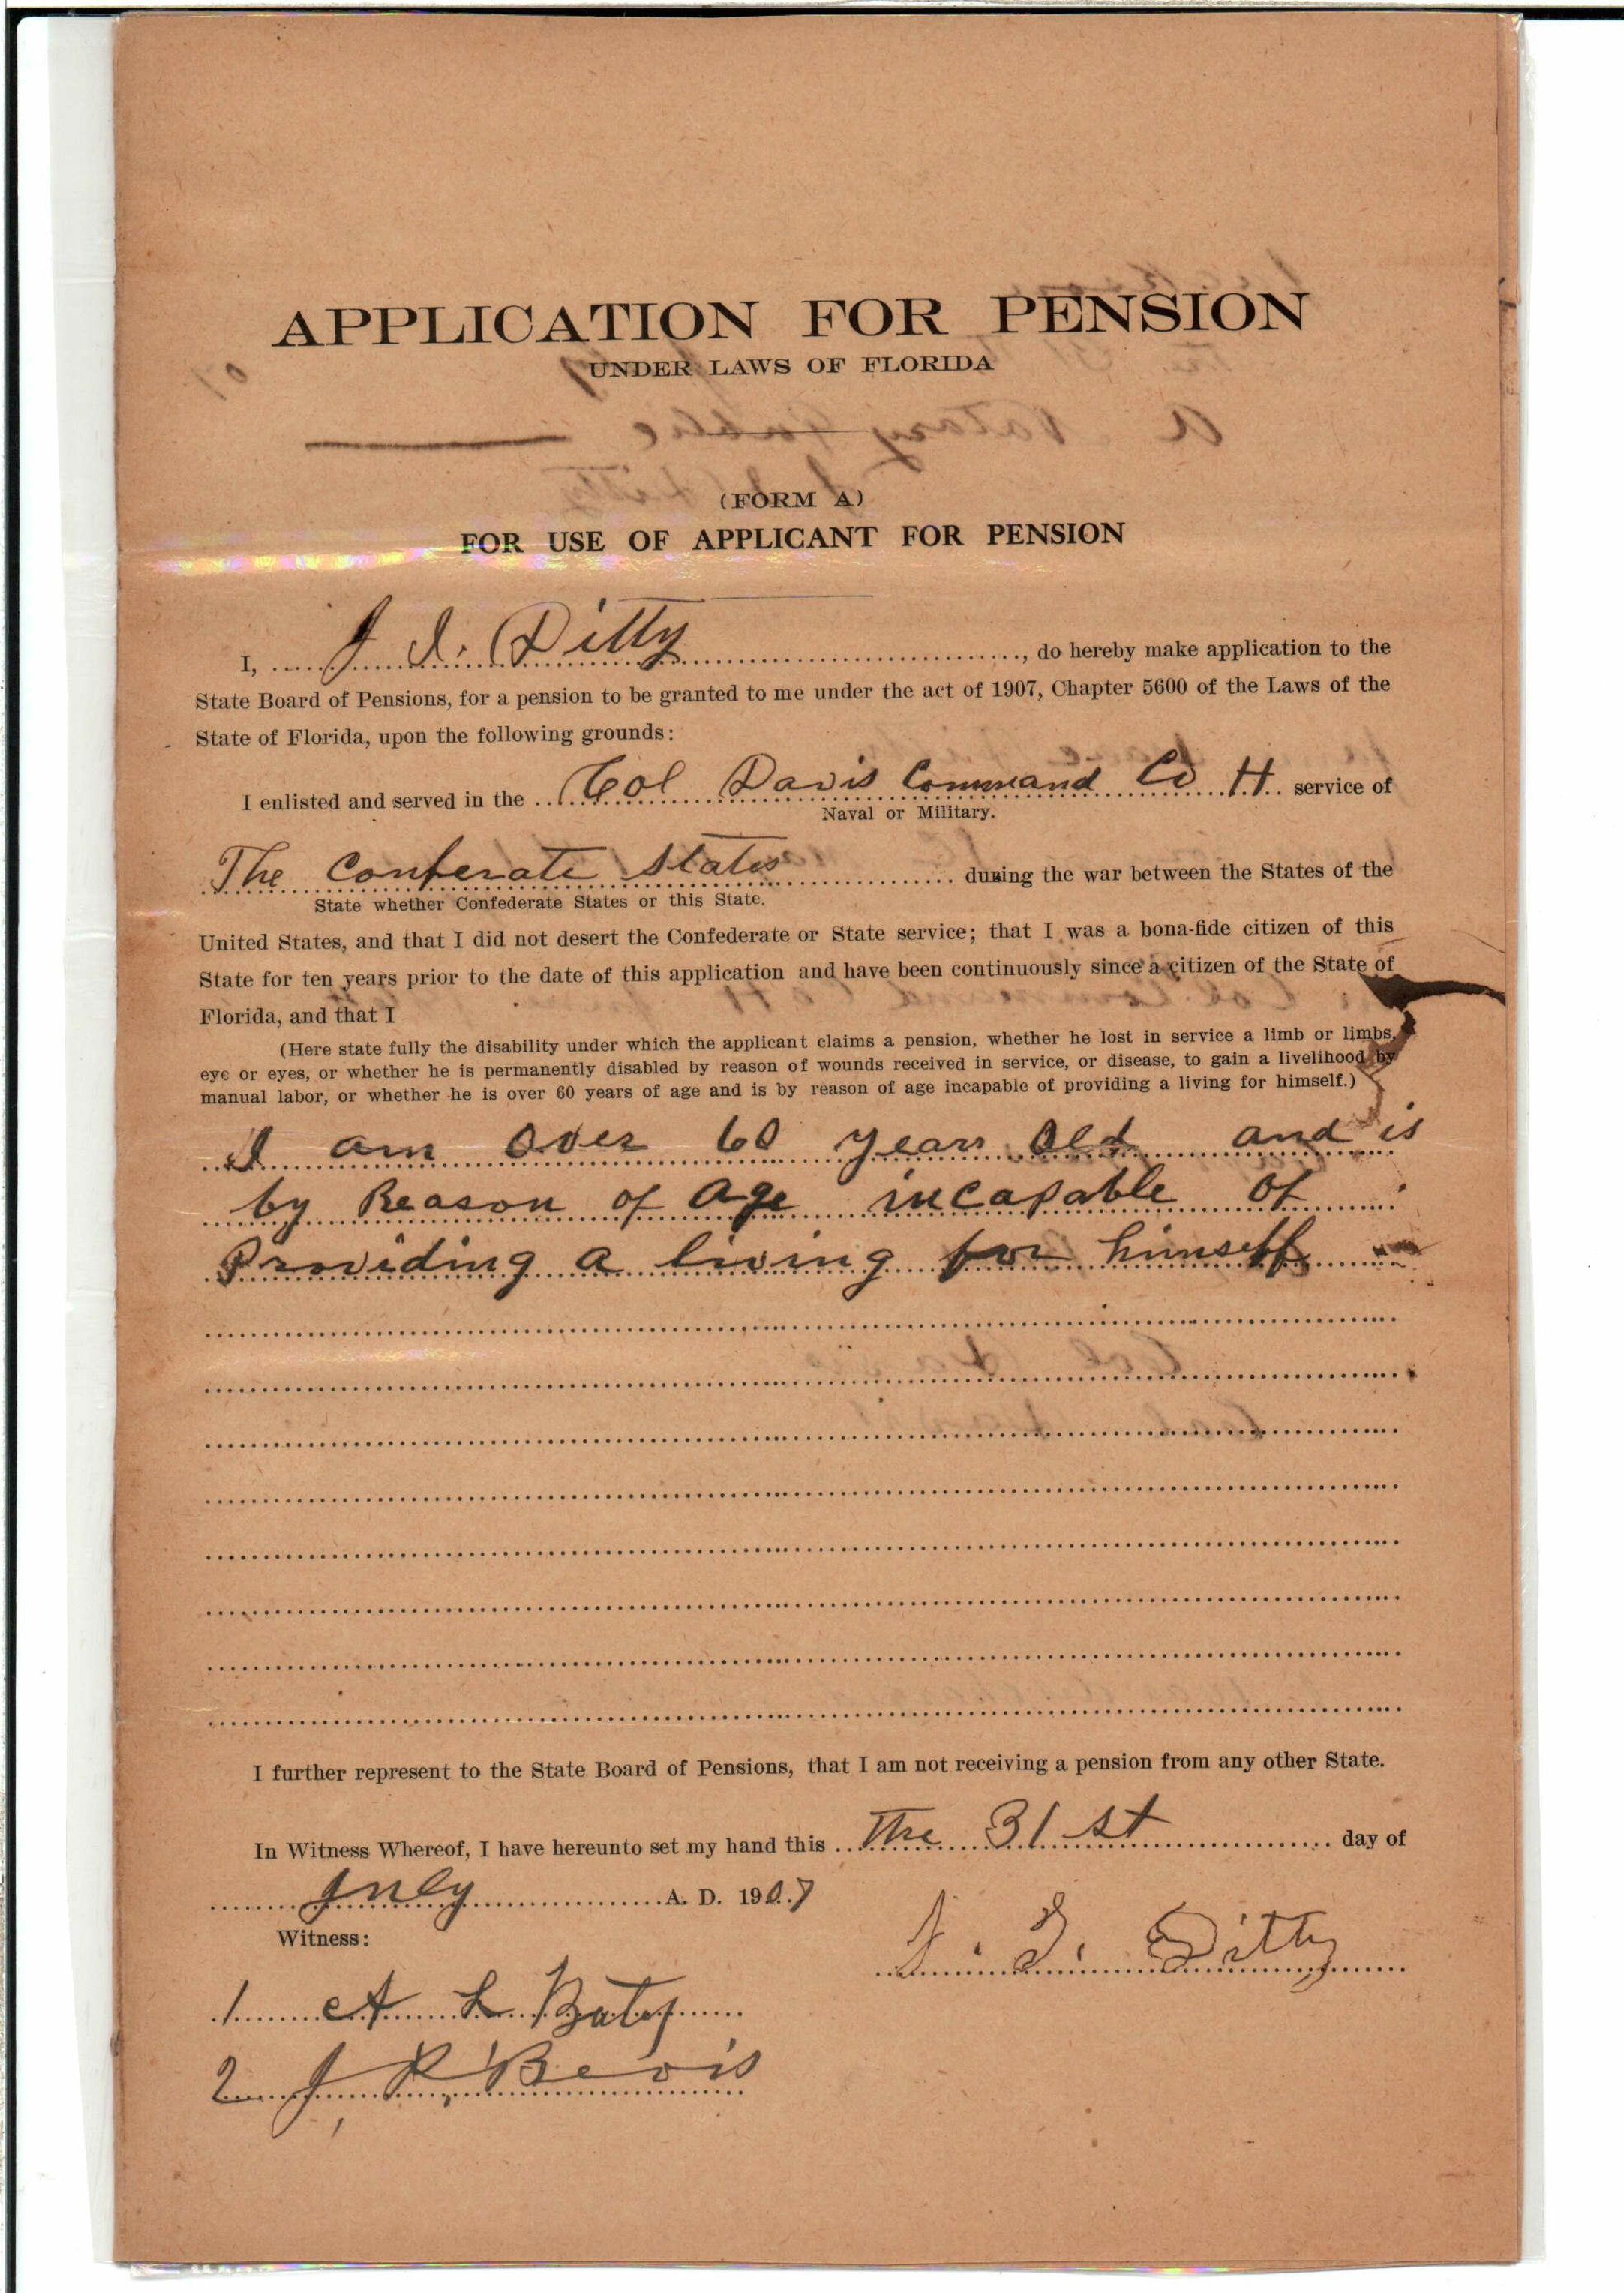 APPLICATION FOR PENSION
UNDER LAWS OF FLORIDA
(FORM A)
FOR USE OF APPLICANT FOR PENSION
I, J. I. Ditty, do hereby make application to the
State Board of Pensions, for a pension to be granted to me under the act of 1907, Chapter 5600 of the Laws of the
State of Florida, upon the following grounds:
I enlisted and served in the Col Davis Command Co H service of
Naval or Military.
The Conferate States during the war between the States of the
State whether Confederate States or this State.
United States, and that I did not desert the Confederate or State service; that I was a bona-fide citizen of this
State for ten years prior to the date of this application and have been continuously since a citizen of the State of
Florida, and that I
(Here state fully the disability under which the applicant claims a pension, whether he lost in service a limb or limbs,
eye or eyes, or whether he is permanently disabled by reason of wounds received in service, or disease, to gain a livelihood by
manual labor, or whether he is over 60 years of age and is by reason of age incapable of providing a living for himself.)
I am over 60 years old and is
by Reason of age incapable of
Providing a living for himself
I further represent to the State Board of Pensions, that I am not receiving a pension from any other State.
In Witness Whereof, I have hereunto set my hand this The 31 st day of
July A. D. 1907
Witness:
J. I. Ditty
1 A L Bates
2 J. R. Bevis